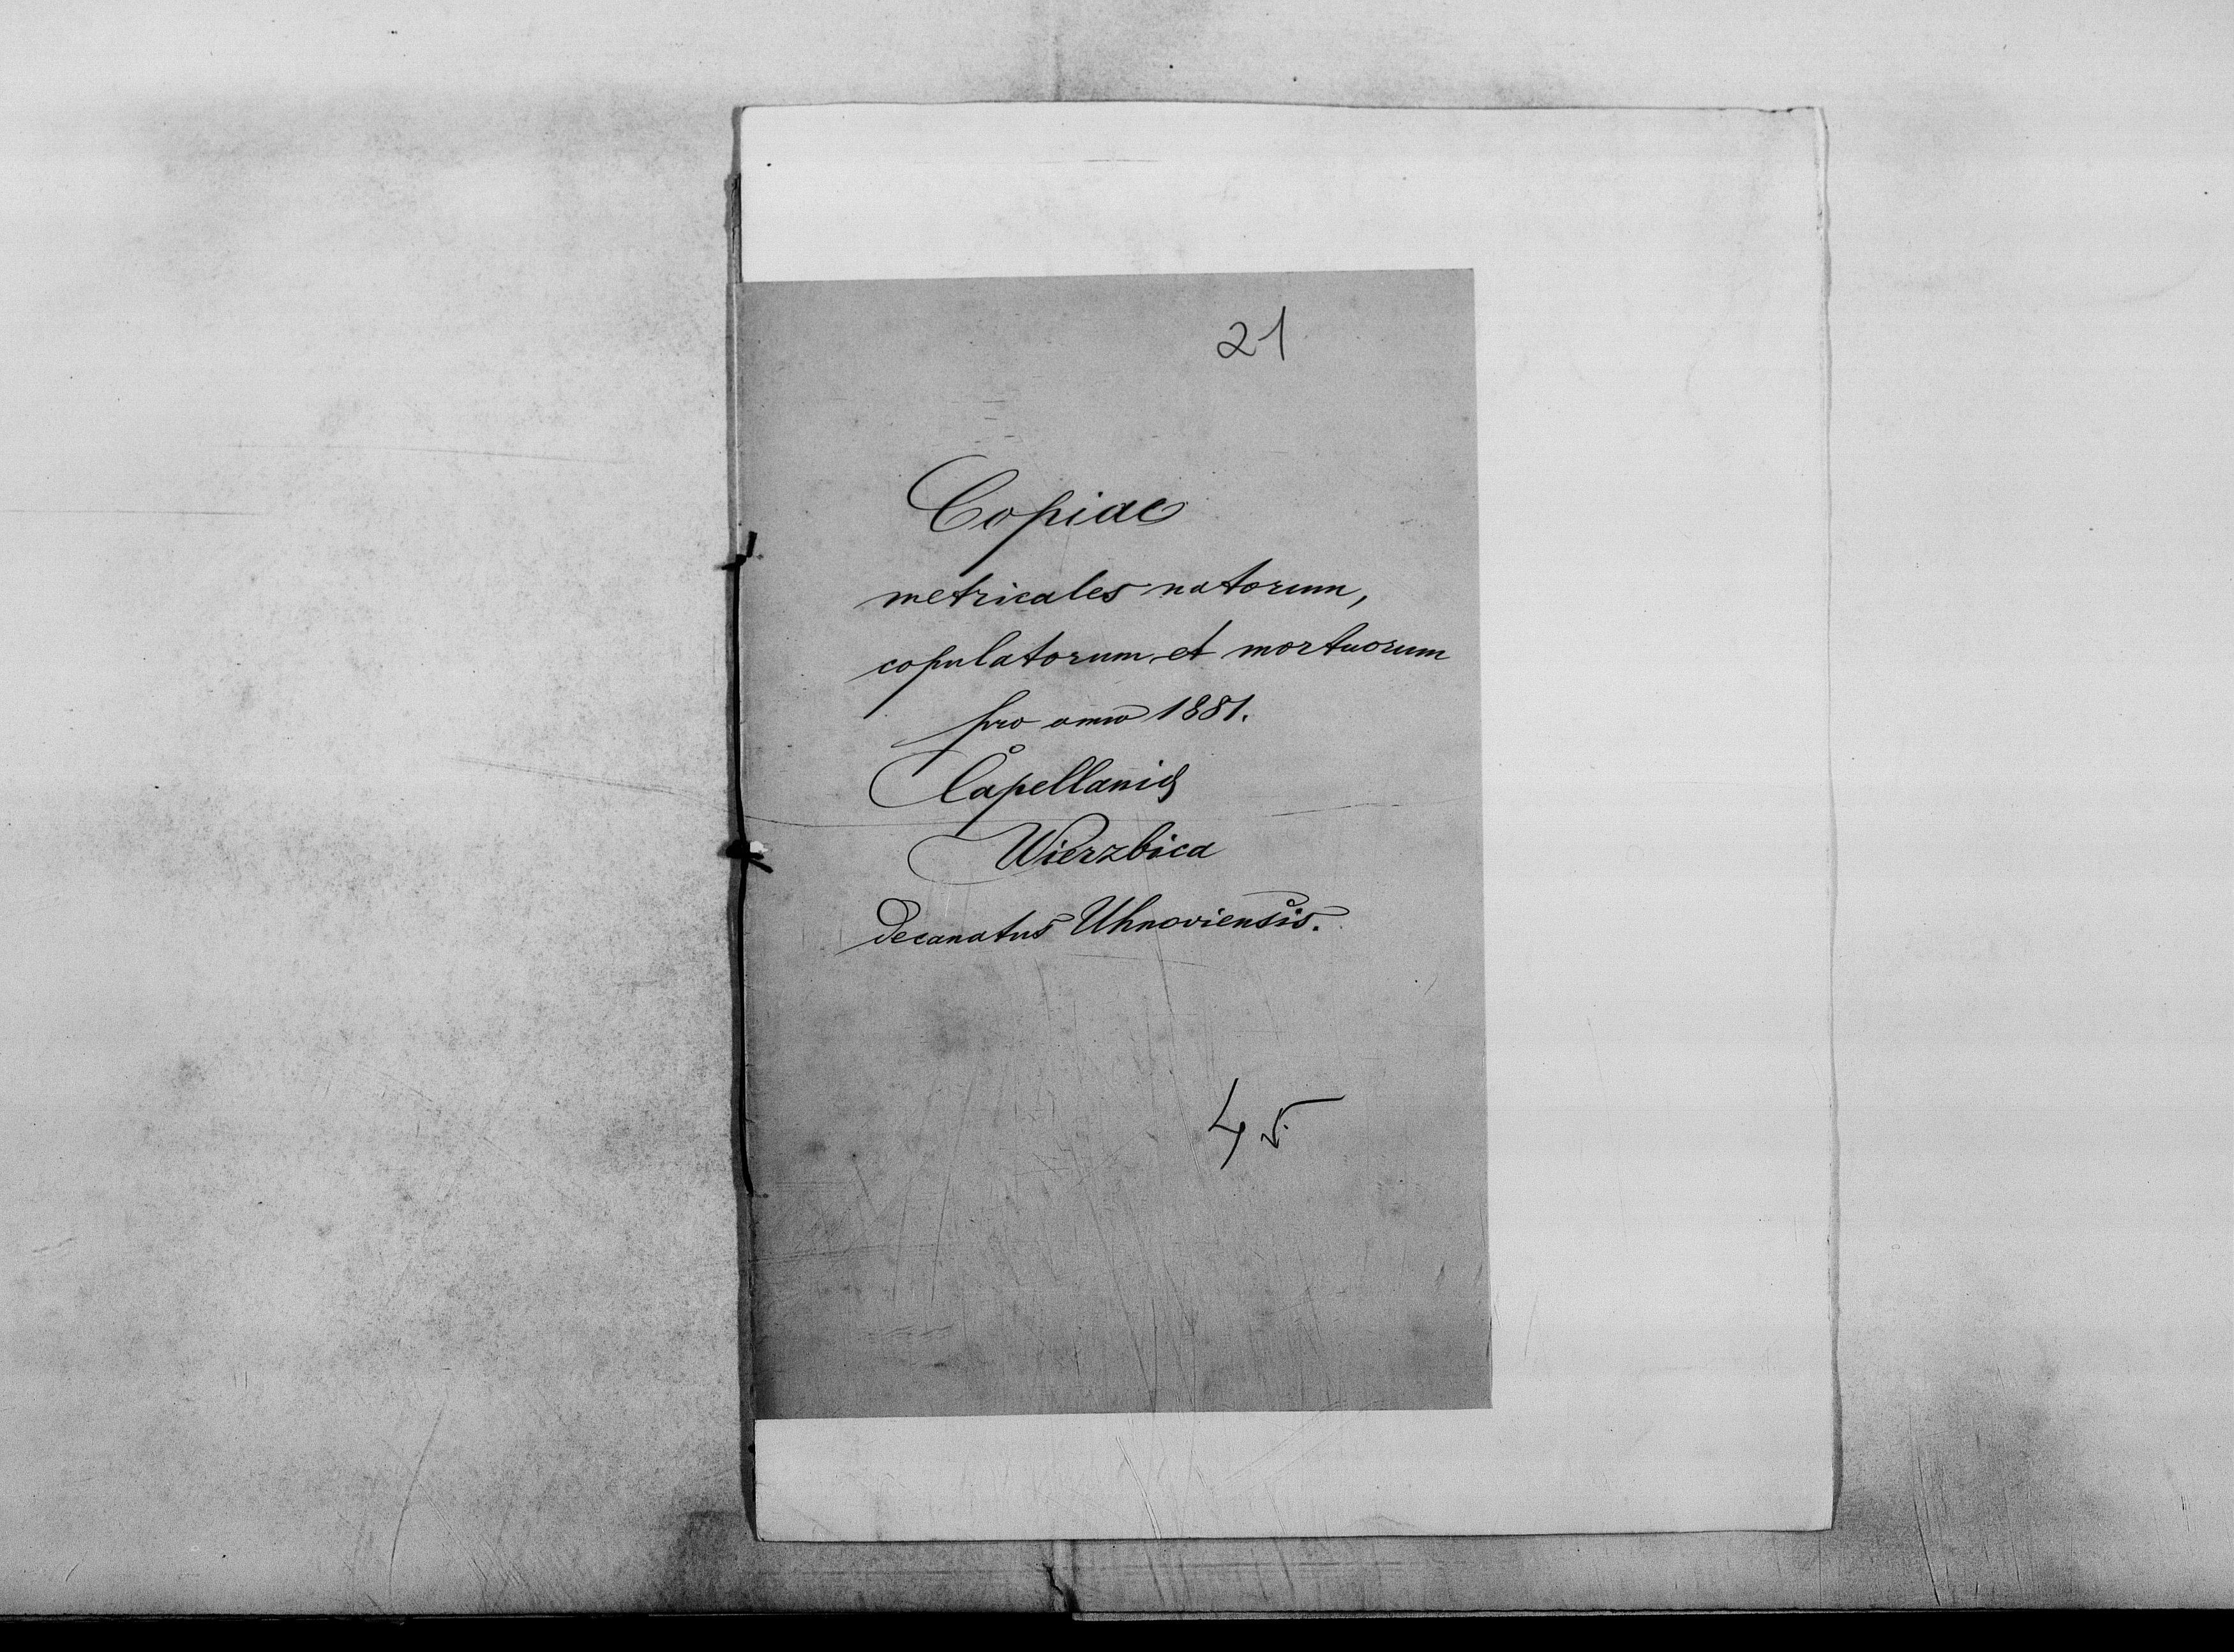 21
Copiae
metricales natorum,
copulatorum et mortuorum
pro anno 1881.
Capellaniae
Wierzbica
Decanatus Uhnoviensis.
45